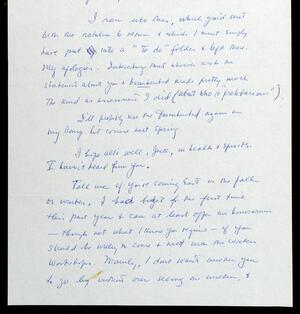 I ran into this, which you'd sent
with the notation to return & which I must simply
have put into a "to do" folder & left there.
My apologies. Interesting that whoever wrote the
statement about you & made pretty much
the kind as assessment I did (about who is "proletarian").
I'll probably use the again on
my Long. lit course next spring.
I hope all's well, Jack, in health & spirits.
I haven't heard from you.
Tell me if you're coming East in the fall
or winter. I had budget for the first time
this past year & can at least offer an honorarium
— though not what I know you require — if you
should be willing to come & meet with the Writers
Workshops. Mainly, I don't want another year
to go by without our seeing one another, &